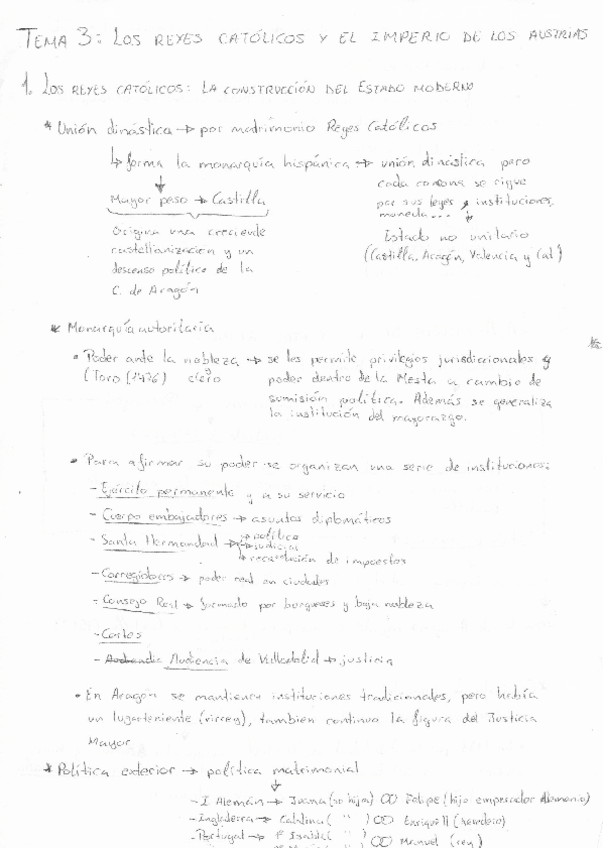 TEMA 3: LOS REYES CATÓLICOS Y EL IMPERIO DE LOS AUSTRIAS
1. LOS REYES CATÓLICOS: LA CONSTRUCCIÓN DEL ESTADO MODERNO
* Unión dinástica → por matrimonio Reyes Católicos
↳ forma la monarquía hispánica → unión dinástica pero
cada corona se rige
por sus leyes, instituciones,
moneda...
Estado no unitario
(Castilla, Aragón, Valencia y Cat)
Mayor peso → Castilla
Origina una creciente
castellanización y un
descenso político de la
C. de Aragón
* Monarquía autoritaria
• Poder ante la nobleza → se les permite privilegios jurisdiccionales y
(Toro (1476) clero
poder dentro de la Mesta a cambio de
sumisión política. Además se generaliza
la institución del mayorazgo.
• Para afirmar su poder se organizan una serie de instituciones:
- Ejército permanente y a su servicio
- Cuerpo embajadores → asuntos diplomáticos
- Santa Hermandad → política
→ judicial
→ recaudación de impuestos
- Corregidores → poder real en ciudades
- Consejo Real → formado por burgueses y baja nobleza
- Cortes
- Audiencia de Valladolid → justicia
• En Aragón se mantienen instituciones tradicionales, pero había
un lugarteniente (virrey), también continuo la figura del Justicia
Mayor
* Política exterior → política matrimonial
- I Alemán → Juana (su hija) ∞ Felipe (hijo emperador alemán)
- Inglaterra → Catalina ( " ) ∞ Enrique (heredero)
- Portugal → Isabel ( " ) ∞ Manuel (rey)